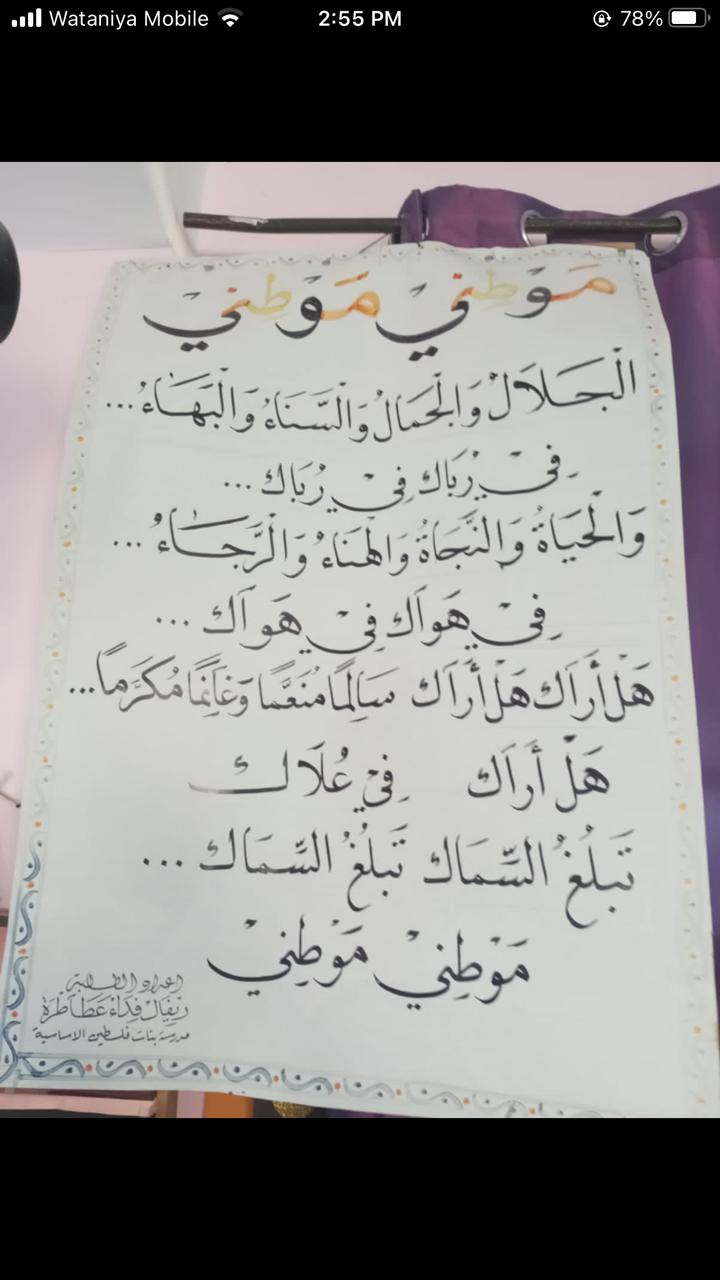 Wataniya Mobile 2:55 PM 78%
مَوْطِنيْ مَوْطِنيْ
الْجَلَالُ وَالْجَمَالُ وَالْسَّنَاءُ وَالْبَهَاءُ...
فِيْ رُبَاك فِيْ رُبَاك...
وَالْحَيَاةُ وَالنَّجَاةُ وَالْهَنَاءُ وَالْرَّجَاءُ...
فِيْ هَوَاَك فِيْ هَوَاَك...
هَلْ أَرَاَك هَلْ أَرَاَك سَالِمًا مُنَعَّمًا وَغَانِمًا مُكَرَّماً...
هَلْ أَرَاَك فِيْ عُلَاك
تَبلُغُ السِّمَاك تَبلُغُ السِّمَاك...
مَوْطِنيْ مَوْطِنيْ
اعداد الطالبة
ريفال فداء عطاطرة
مدرسة بنات فلسطين الاساسية